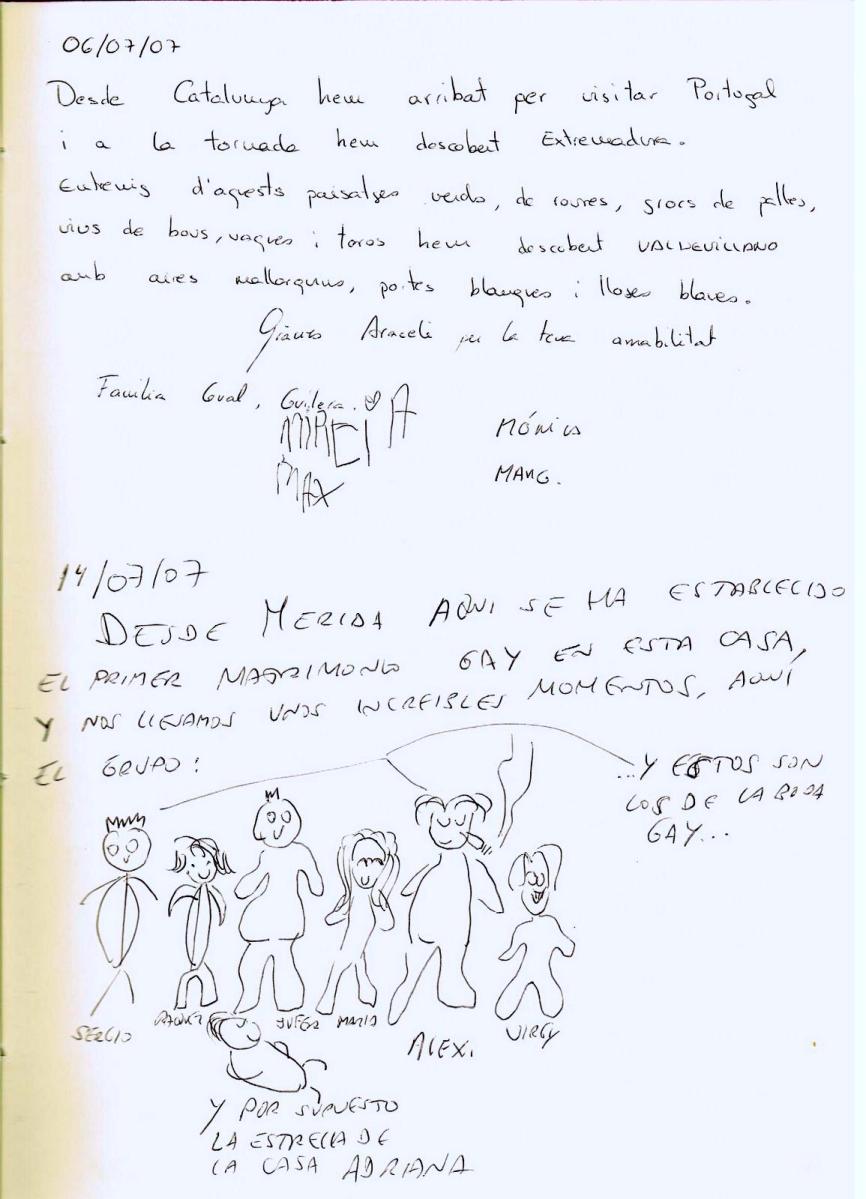 06/07/07
Desde Catalunya hem arribat per visitar Portugal
i a la tornada hem descobert Extremadura.
d'aquests paisatges verds, de roures, grocs de palles,
vius de bous, vaques i toros hem descobert VALDEVILLANO
amb aires mallorquins, portes blanques i lloses blaves.
Gràcies Araceli per la teva amabilitat
Familia Gual, Guilera.
MIREIA
MAX
MÓNICA
MARG.
14/07/07
DESDE MERIDA AQUI SE HA ESTABLECIDO
EL PRIMER MATRIMONIO GAY EN ESTA CASA,
Y NOS LLEVAMOS UNOS INCREIBLES MOMENTOS, AQUÍ
EL GRUPO:
...Y ESTOS SON
LOS DE LA BODA
GAY...
SERGIO
MARIA
ALEX.
VIRGY
Y POR SUPUESTO
LA ESTRELLA DE
LA CASA ADRIANA